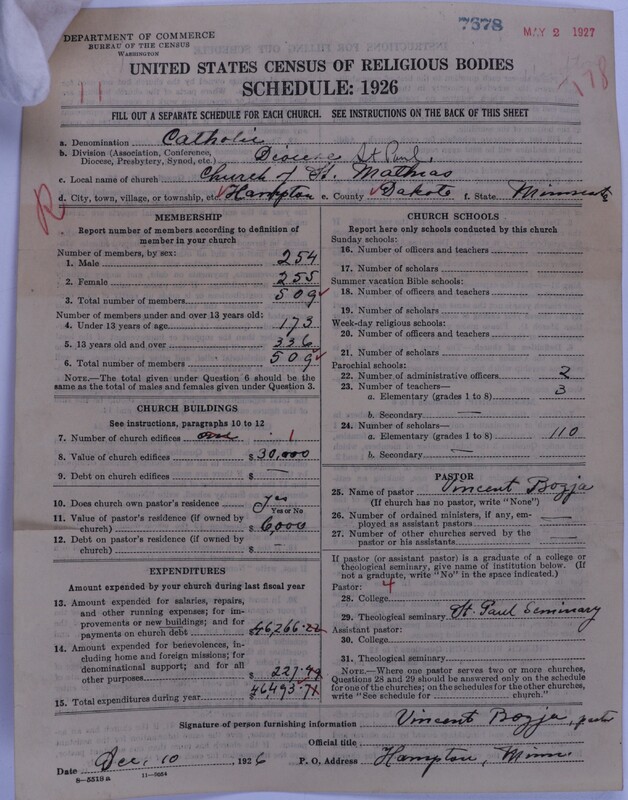 7378
MAY 2 1927
DEPARTMENT OF COMMERCE
BUREAU OF THE CENSUS
WASHINGTON
UNITED STATES CENSUS OF RELIGIOUS BODIES
SCHEDULE: 1926
11
178
FILL OUT A SEPARATE SCHEDULE FOR EACH CHURCH. SEE INSTRUCTIONS ON THE BACK OF THIS SHEET
a. Denomination Catholic
b. Division (Association, Conference, Diocese, Presbytery, Synod, etc.) Diocese St Paul.
c. Local name of church Church of St. Mathias
d. City, town, village, or township, etc. Hampton e. County Dakota f. State Minnesota
R
MEMBERSHIP
Report number of members according to definition of
member in your church
Number of members, by sex:
1. Male 254
2. Female 255
3. Total number of members 509
Number of members under and over 13 years old:
4. Under 13 years of age 173
5. 13 years old and over 336
6. Total number of members 509
NOTE.—The total given under Question 6 should be
same as the total of males and females given under Question 3.
CHURCH BUILDINGS
See instructions, paragraphs 10 to 12
7. Number of church edifices one 1
8. Value of church edifices $ 30,000
9. Debt on church edifices $ —
10. Does church own pastor's residence Yes
Yes or No
11. Value of pastor's residence (if owned by
church) $ 6,000
12. Debt on pastor's residence (if owned by
church) $ —
EXPENDITURES
Amount expended by your church during last fiscal year
13. Amount expended for salaries, repairs,
and other running expenses; for im-
provements or new buildings; and for
payments on church debt $46,266.22
14. Amount expended for benevolences, in-
cluding home and foreign missions; for
denominational support; and for all
other purposes $ 227.49
15. Total expenditures during year $46493.71
CHURCH SCHOOLS
Report here only schools conducted by this church
Sunday schools:
16. Number of officers and teachers
17. Number of scholars
Summer vacation Bible schools:
18. Number of officers and teachers
19. Number of scholars
Week-day religious schools:
20. Number of officers and teachers
21. Number of scholars
Parochial schools:
22. Number of administrative officers 2
23. Number of teachers—
a. Elementary (grades 1 to 8) 3
b. Secondary —
24. Number of scholars—
a. Elementary (grades 1 to 8) 110
b. Secondary —
PASTOR
25. Name of pastor Vincent Bozja
(If church has no pastor, write "None")
26. Number of ordained ministers, if any, em-
ployed as assistant pastors —
27. Number of other churches served by the
pastor or his assistants —
If pastor (or assistant pastor) is a graduate of a college or
theological seminary, give name of institution below. (If
not a graduate, write "No" in the space indicated.)
Pastor: 4
28. College
29. Theological seminary St. Paul Seminary
Assistant pastor:
30. College
31. Theological seminary
NOTE.—Where one pastor serves two or more churches,
Questions 28 and 29 should be answered only on the schedule
for one of the churches; on the schedules for the other churches,
write "See schedule for church."
Signature of person furnishing information Vincent Bozja, pastor
Official title
Date Dec. 10, 1926 P. O. Address Hampton, Minn.
8—5519 a 11—9054